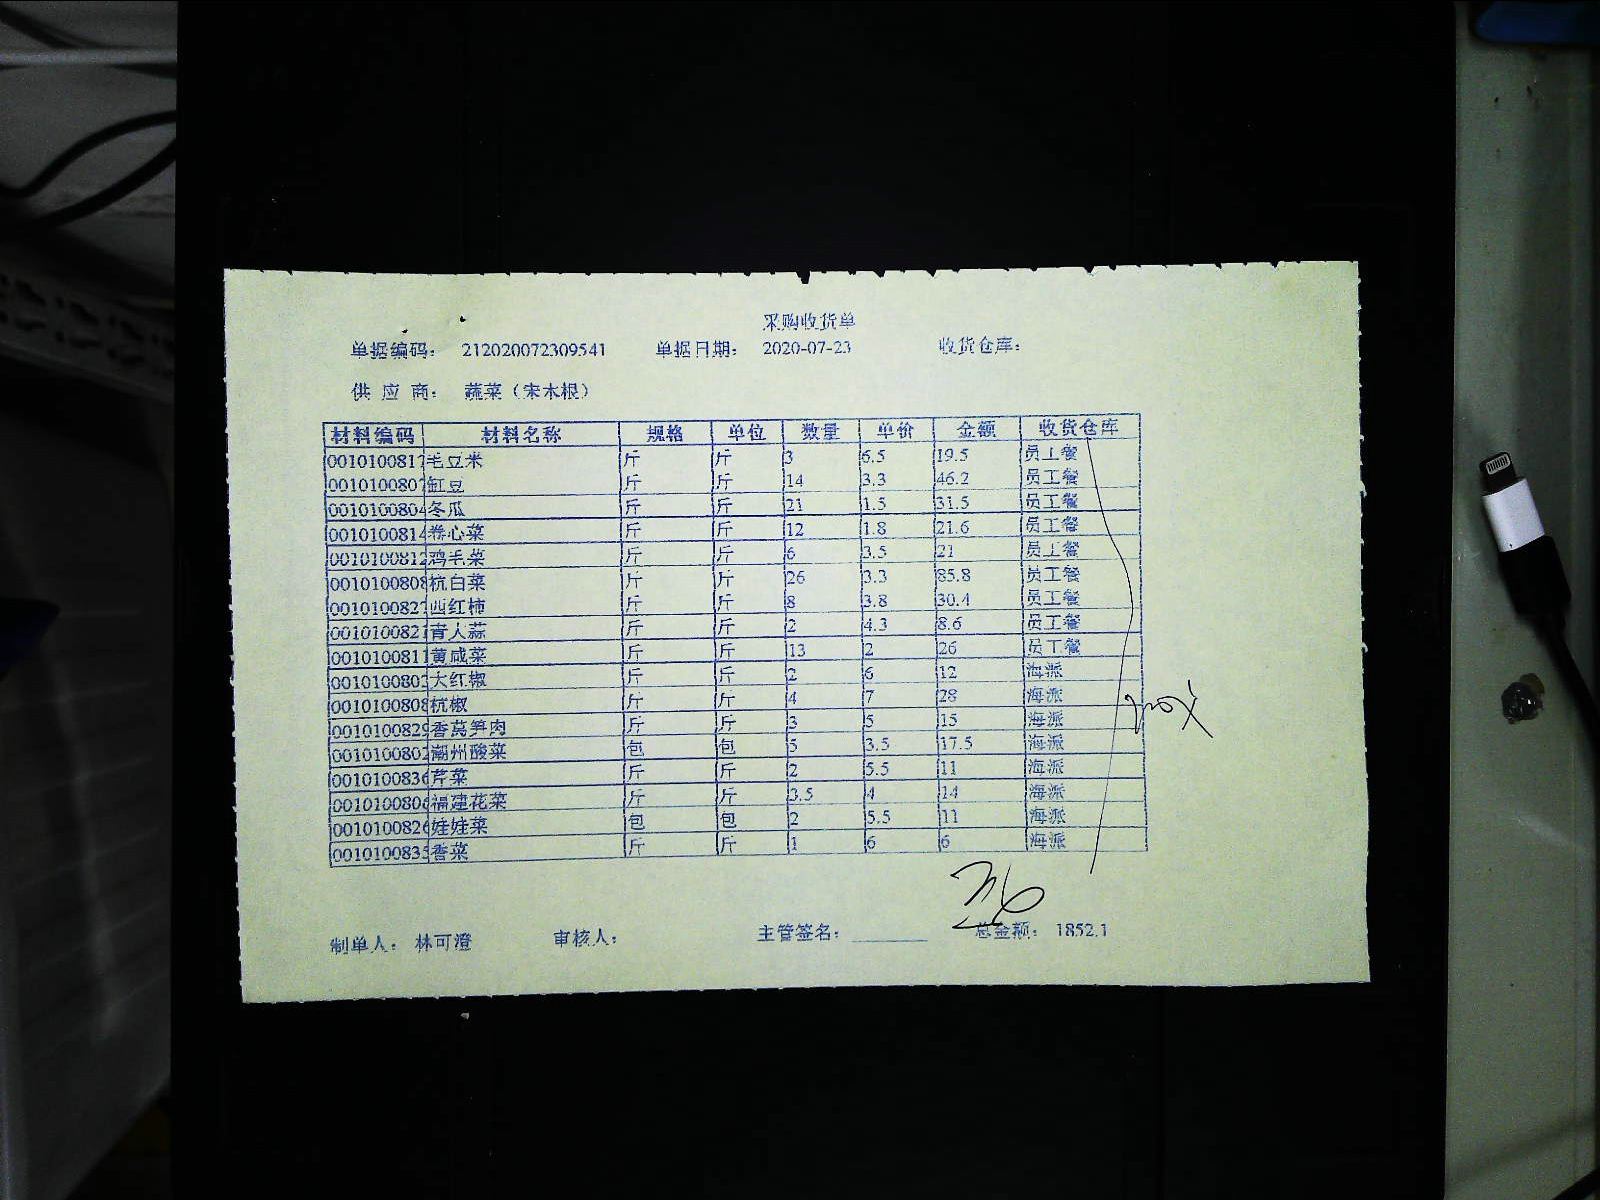 采购收货单
单据编码： 212020072309541 单据日期： 2020-07-23 收货仓库：
供 应 商： 蔬菜（宋木根）
材料编码 材料名称 规格 单位 数量 单价 金额 收货仓库
0010100817 毛豆米 斤 斤 3 6.5 19.5 员工餐
0010100807 缸豆 斤 斤 14 3.3 46.2 员工餐
0010100804 冬瓜 斤 斤 21 1.5 31.5 员工餐
0010100814 卷心菜 斤 斤 12 1.8 21.6 员工餐
0010100812 鸡毛菜 斤 斤 6 3.5 21 员工餐
0010100808 杭白菜 斤 斤 26 3.3 85.8 员工餐
0010100827 西红柿 斤 斤 8 3.8 30.4 员工餐
0010100821 青大蒜 斤 斤 2 4.3 8.6 员工餐
0010100811 黄咸菜 斤 斤 13 2 26 员工餐
0010100803 大红椒 斤 斤 2 6 12 海派
0010100808 杭椒 斤 斤 4 7 28 海派
0010100829 香莴笋肉 斤 斤 3 5 15 海派
0010100802 潮州酸菜 包 包 5 3.5 17.5 海派
0010100836 芹菜 斤 斤 2 5.5 11 海派
0010100806 福建花菜 斤 斤 3.5 4 14 海派
0010100826 娃娃菜 包 包 2 5.5 11 海派
0010100835 香菜 斤 斤 1 6 6 海派
制单人： 林可澄 审核人： 主管签名： 总金额： 1852.1